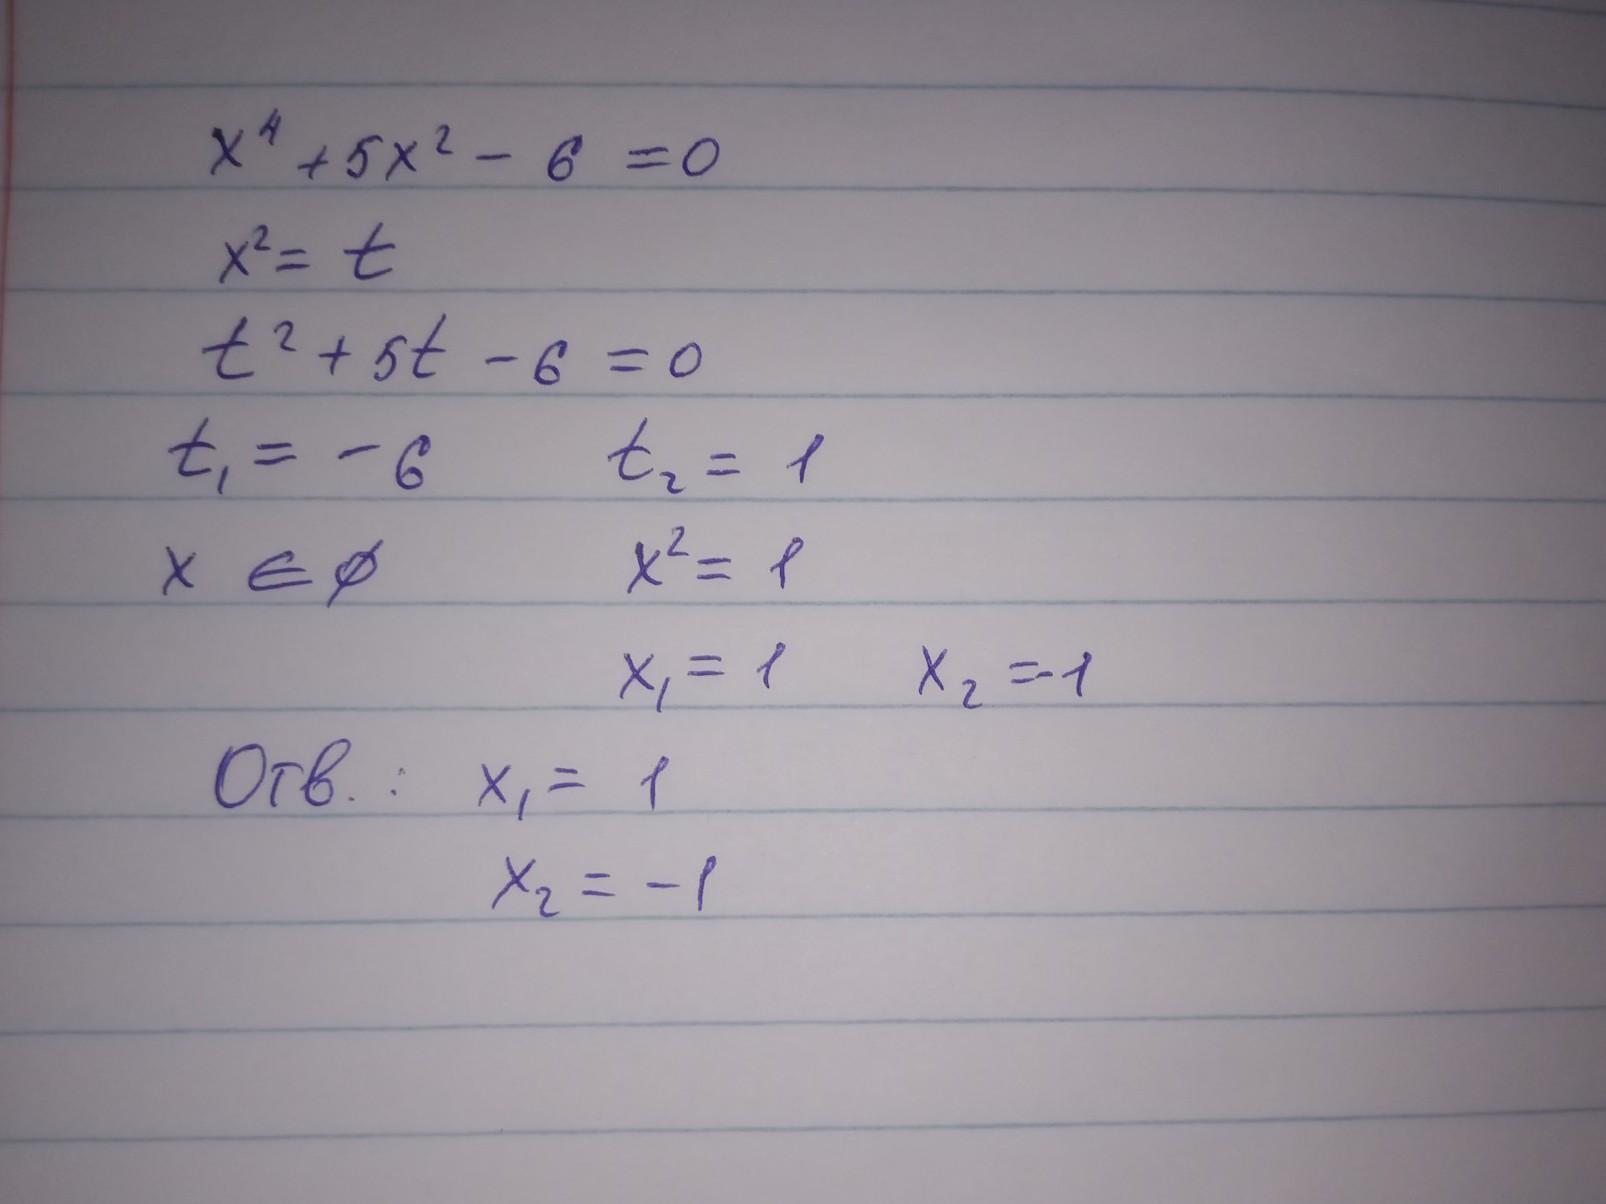 x⁴ + 5x² - 6 = 0
x² = t
t² + 5t - 6 = 0
t₁ = -6 t₂ = 1
x ∈ ∅ x² = 1
x₁ = 1 x₂ = -1
Отв.: x₁ = 1
x₂ = -1